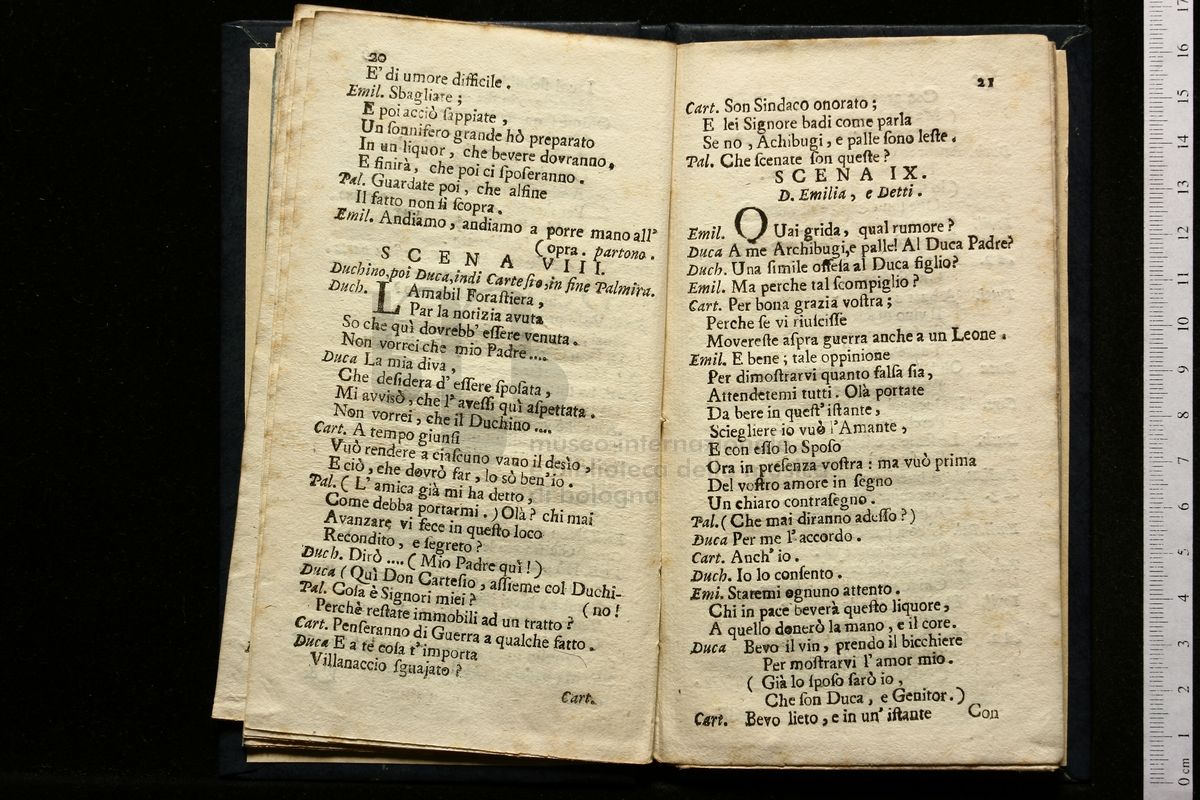 20
E' di umore difficile.
Emil. Sbagliate;
E poi acciò ſappiate,
Un ſonnifero grande hò preparato
In un liquor, che bevere dovranno.
E finirà, che poi ci ſpoſeranno.
Pal. Guardate poi, che alfine
Il fatto non ſi ſcopra.
Emil. Andiamo, andiamo a porre mano all'
(opra. partono.
SCENA VIII.
Duchino, poi Duca, indi Carteſio, in fine Palmira.
Duch. L Amabil Foraſtiera,
Par la notizia avuta
So che quì dovrebb' eſſere venuta.
Non vorrei che mio Padre....
Duca La mia diva,
Che deſidera d' eſſere ſpoſata,
Mi avvisò, che l' aveſſi quì aſpettata.
Non vorrei, che il Duchino....
Cart. A tempo giunſi
Vuò rendere a ciaſcuno vano il desìo,
E ciò, che dovrò far, lo sò ben' io.
Pal. (L' amica già mi ha detto,
Come debba portarmi.) Olà? chi mai
Avanzare vi fece in queſto loco
Recondito, e ſegreto?
Duch. Dirò.... (Mio Padre quì!)
Duca (Quì Don Carteſio, aſſieme col Duchi-
Pal. Coſa è Signori miei? (no!
Perchè reſtate immobili ad un tratto?
Cart. Penſeranno di Guerra a qualche fatto.
Duca E a te coſa t' importa
Villanaccio ſguajato?
Cart.
21
Cart. Son Sindaco onorato;
E lei Signore badi come parla
Se no, Achibugi, e palle ſono leſte.
Pal. Che ſcenate ſon queſte?
SCENA IX.
D. Emilia, e Detti.
Emil. QUai grida, qual rumore?
Duca A me Archibugi,e palle! Al Duca Padre?
Duch. Una ſimile offeſa al Duca figlio?
Emil. Ma perche tal ſcompiglio?
Cart. Per bona grazia voſtra;
Perche ſe vi riuſciſſe
Movereſte aſpra guerra anche a un Leone.
Emil. E bene; tale oppinione
Per dimoſtrarvi quanto falſa ſia,
Attendetemi tutti. Olà portate
Da bere in queſt' iſtante,
Sciegliere io vuò l'Amante,
E con eſſo lo Spoſo
Ora in preſenza voſtra: ma vuò prima
Del voſtro amore in ſegno
Un chiaro contraſegno.
Pal. (Che mai diranno adeſſo?)
Duca Per me l' accordo.
Cart. Anch' io.
Duch. Io lo conſento.
Emi. Statemi ognuno attento.
Chi in pace beverà queſto liquore,
A quello donerò la mano, e il core.
Duca Bevo il vin, prendo il bicchiere
Per moſtrarvi l' amor mio.
(Già lo ſpoſo ſarò io,
Che ſon Duca, e Genitor.)
Cart. Bevo lieto, e in un' iſtante
Con
museo internazionale
e biblioteca della musica
di bologna
0 cm 1 2 3 4 5 6 7 8 9 10 11 12 13 14 15 16 17